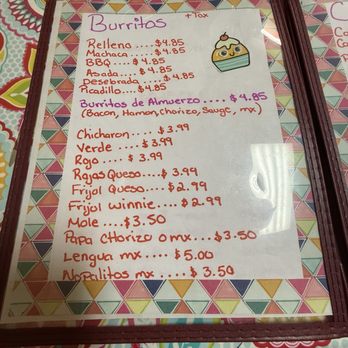 Burritos + Tax
Rellena .... $4.85
Machaca .... $4.85
BBQ .... $4.85
Asada .... $4.85
Desebrada .... $4.85
Picadillo .... $4.85
Burritos de Almuerzo .... $4.85
(Bacon, Hamon, Chorizo, Sauge, mx.)
Chicharon .... $3.99
Verde .... $3.99
Rojo .... $3.99
Rajas Queso .... $3.99
Frijol Queso .... $2.99
Frijol winnie .... $2.99
Mole .... $3.50
Papa Chorizo o mx ... $3.50
Lengua mx .... $5.00
Nopalitos mx .... $3.50